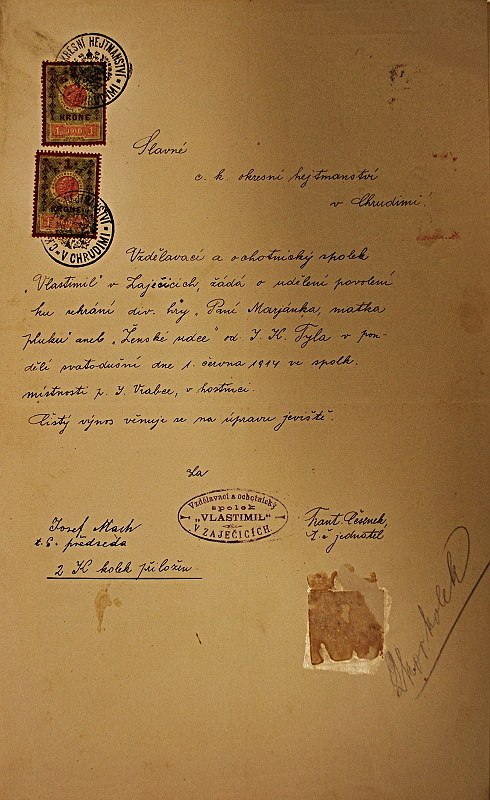 OKRESNÍ HEJTMANSTVÍ
V CHRUDIMI
KRONE
1 1910 1
1
KRONE
HEJTMANSTVÍ
V CHRUDIMI
Slavné
c. k. okresní hejtmanství
v Chrudimi!
Vzdělávací a ochotnický spolek
„Vlastimil" v Zaječicích, žádá o udělení povolení
ku sehrání div. hry „Paní Marjánka, matka
pluku" aneb „Ženské srdce" od J. K. Tyla v pon-
dělí svatodušní dne 1. června 1914 ve spolk.
místnosti p. J. Vrabce, v hostinci.
Čistý výnos věnuje se na úpravu jeviště.
Za
Vzdělávací a ochotnický
spolek
„VLASTIMIL"
V ZAJEČICÍCH
Josef Mach
t. č. předseda
Frant. Česenek,
t. č. jednatel
2 K kolek přiložen.
kolek